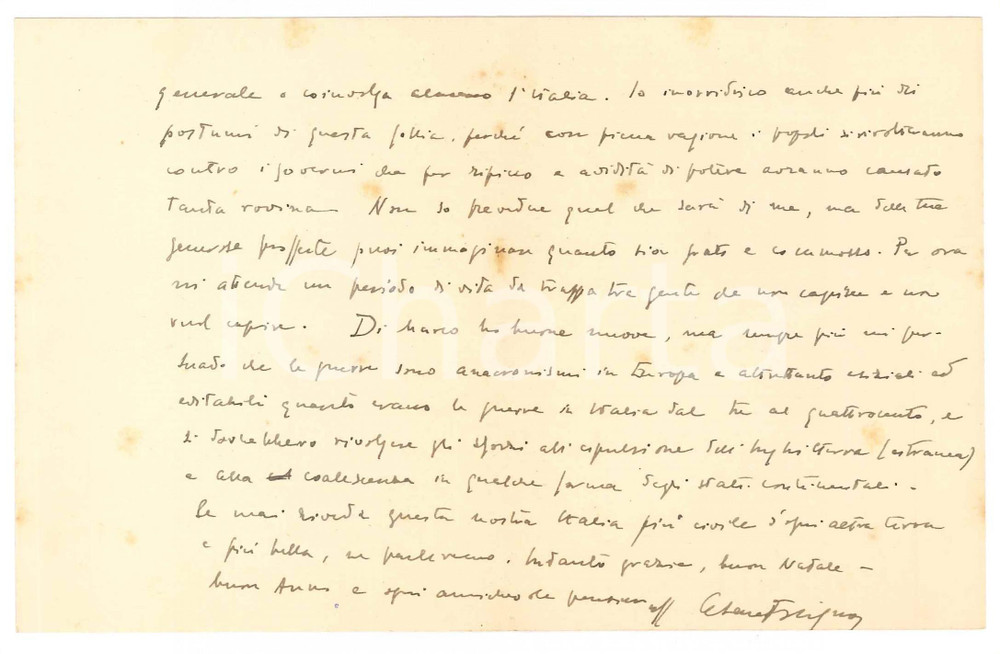 generale e coinvolga almeno l'Italia. Io inorridisco anche più dei
postumi di questa follia, perché con piena ragione i popoli si rivolteranno
contro i governi che per e avidità di potere avranno causato
tanta rovina. Non so prevedere quel che sarà di me, ma dalle tue
generose proposte puoi immaginare quanto sia grato e commosso. Per ora
mi attende un periodo di vita da tra gente che non capisce e non
vuol capire. Di Marco ho buone nuove, ma sempre più mi per-
suado che le guerre sono anacronismi in Europa e altrettanto esiziali ed
evitabili quanto erano le guerre in Italia dal tre al quattrocento, e
si dovrebbero rivolgere gli sforzi all'espulsione dell'Inghilterra (estranea)
e alla coalescenza in qualche forma degli stati continentali.
Se mai rivedrò questa nostra Italia più civile d'ogni altra terra
e più bella, ne parleremo. Intanto grazie, buon Natale -
buon Anno e ogni amichevole pensiero
iCharta